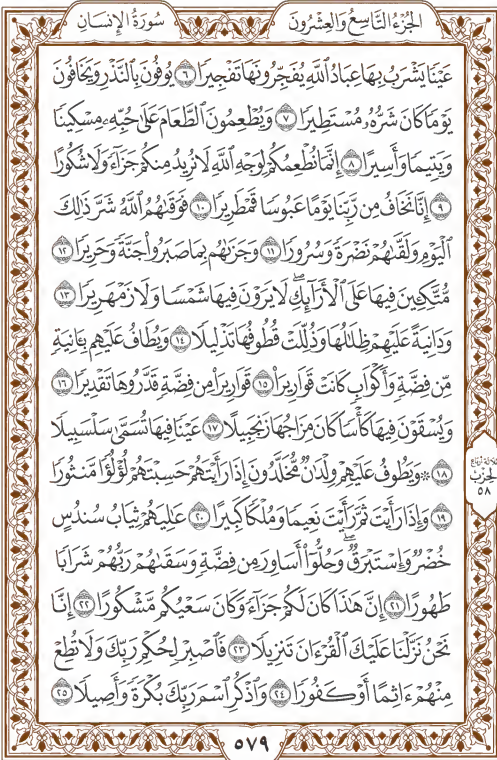 الجُزْءُ التَّاسِعُ وَالعِشْرُونَ
سُورَةُ الإِنسَان
عَيْنًا يَشْرَبُ بِهَا عِبَادُ ٱللَّهِ يُفَجِّرُونَهَا تَفْجِيرًا ٦ يُوفُونَ بِٱلنَّذْرِ وَيَخَافُونَ
يَوْمًا كَانَ شَرُّهُۥ مُسْتَطِيرًا ٧ وَيُطْعِمُونَ ٱلطَّعَامَ عَلَىٰ حُبِّهِۦ مِسْكِينًا
وَيَتِيمًا وَأَسِيرًا ٨ إِنَّمَا نُطْعِمُكُمْ لِوَجْهِ ٱللَّهِ لَا نُرِيدُ مِنكُمْ جَزَآءً وَلَا شُكُورًا
٩ إِنَّا نَخَافُ مِن رَّبِّنَا يَوْمًا عَبُوسًا قَمْطَرِيرًا ١٠ فَوَقَىٰهُمُ ٱللَّهُ شَرَّ ذَٰلِكَ
ٱلْيَوْمِ وَلَقَّىٰهُمْ نَضْرَةً وَسُرُورًا ١١ وَجَزَىٰهُم بِمَا صَبَرُوا۟ جَنَّةً وَحَرِيرًا ١٢
مُّتَّكِـِٔينَ فِيهَا عَلَى ٱلْأَرَآئِكِ ۖ لَا يَرَوْنَ فِيهَا شَمْسًا وَلَا زَمْهَرِيرًا ١٣
وَدَانِيَةً عَلَيْهِمْ ظِلَـٰلُهَا وَذُلِّلَتْ قُطُوفُهَا تَذْلِيلًا ١٤ وَيُطَافُ عَلَيْهِم بِـَٔانِيَةٍ
مِّن فِضَّةٍ وَأَكْوَابٍ كَانَتْ قَوَارِيرَا۠ ١٥ قَوَارِيرَا۟ مِن فِضَّةٍ قَدَّرُوهَا تَقْدِيرًا ١٦
وَيُسْقَوْنَ فِيهَا كَأْسًا كَانَ مِزَاجُهَا زَنجَبِيلًا ١٧ عَيْنًا فِيهَا تُسَمَّىٰ سَلْسَبِيلًا
١٨ ۞ وَيَطُوفُ عَلَيْهِمْ وِلْدَٰنٌ مُّخَلَّدُونَ إِذَا رَأَيْتَهُمْ حَسِبْتَهُمْ لُؤْلُؤًا مَّنثُورًا
١٩ وَإِذَا رَأَيْتَ ثَمَّ رَأَيْتَ نَعِيمًا وَمُلْكًا كَبِيرًا ٢٠ عَـٰلِيَهُمْ ثِيَابُ سُندُسٍ
خُضْرٌ وَإِسْتَبْرَقٌ ۖ وَحُلُّوٓا۟ أَسَاوِرَ مِن فِضَّةٍ وَسَقَىٰهُمْ رَبُّهُمْ شَرَابًا
طَهُورًا ٢١ إِنَّ هَـٰذَا كَانَ لَكُمْ جَزَآءً وَكَانَ سَعْيُكُم مَّشْكُورًا ٢٢ إِنَّا
نَحْنُ نَزَّلْنَا عَلَيْكَ ٱلْقُرْءَانَ تَنزِيلًا ٢٣ فَٱصْبِرْ لِحُكْمِ رَبِّكَ وَلَا تُطِعْ
مِنْهُمْ ءَاثِمًا أَوْ كَفُورًا ٢٤ وَٱذْكُرِ ٱسْمَ رَبِّكَ بُكْرَةً وَأَصِيلًا ٢٥
ثلاثة أرباع
الحزب
٥٨
٥٧٩